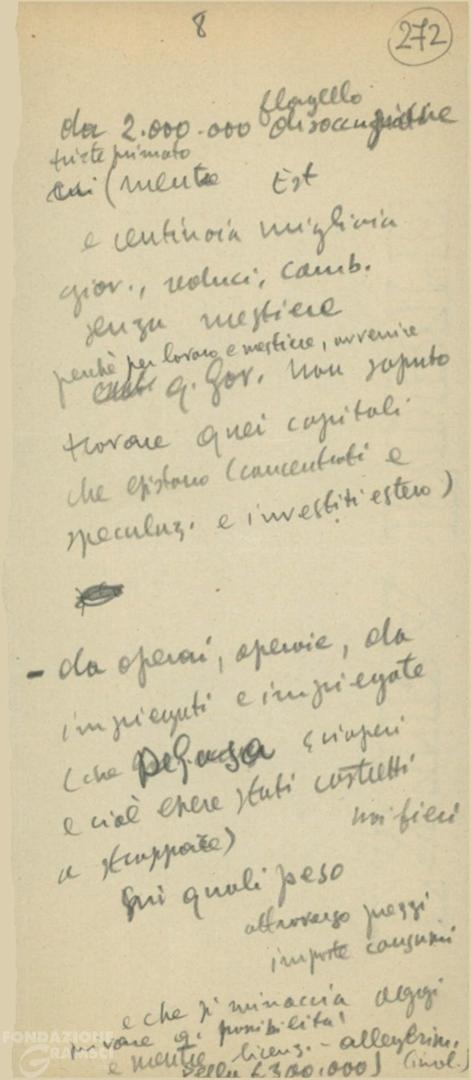 8
272
flagello
da 2.000.000 disoccupati e
triste primato
(mentre Est
e centinaia migliaia
giov., reduci, comb.
senza mestiere
perchè per lavoro e mestiere, avvenire
q. Gov. non saputo
trovare quei capitali
che esistono (concentrati e
speculaz. e investiti estero)
- da operai, operaie, da
impiegati e impiegate
(che scioperi
e cioè essere stati costretti
a strappare)
noi fieri
sui quali peso
attraverso prezzi
imposte consumi
e che si minaccia oggi
q. possibilità
e mentre licenz. - alleggerim.
300.000)
FONDAZIONE
GRAMSCI